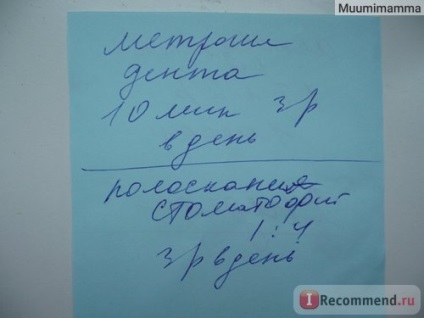 Muumimamma
метрогил
дента
10 мин 3р
в день
полоскания
стоматофит
1:4
3р в день
I Recommend.ru